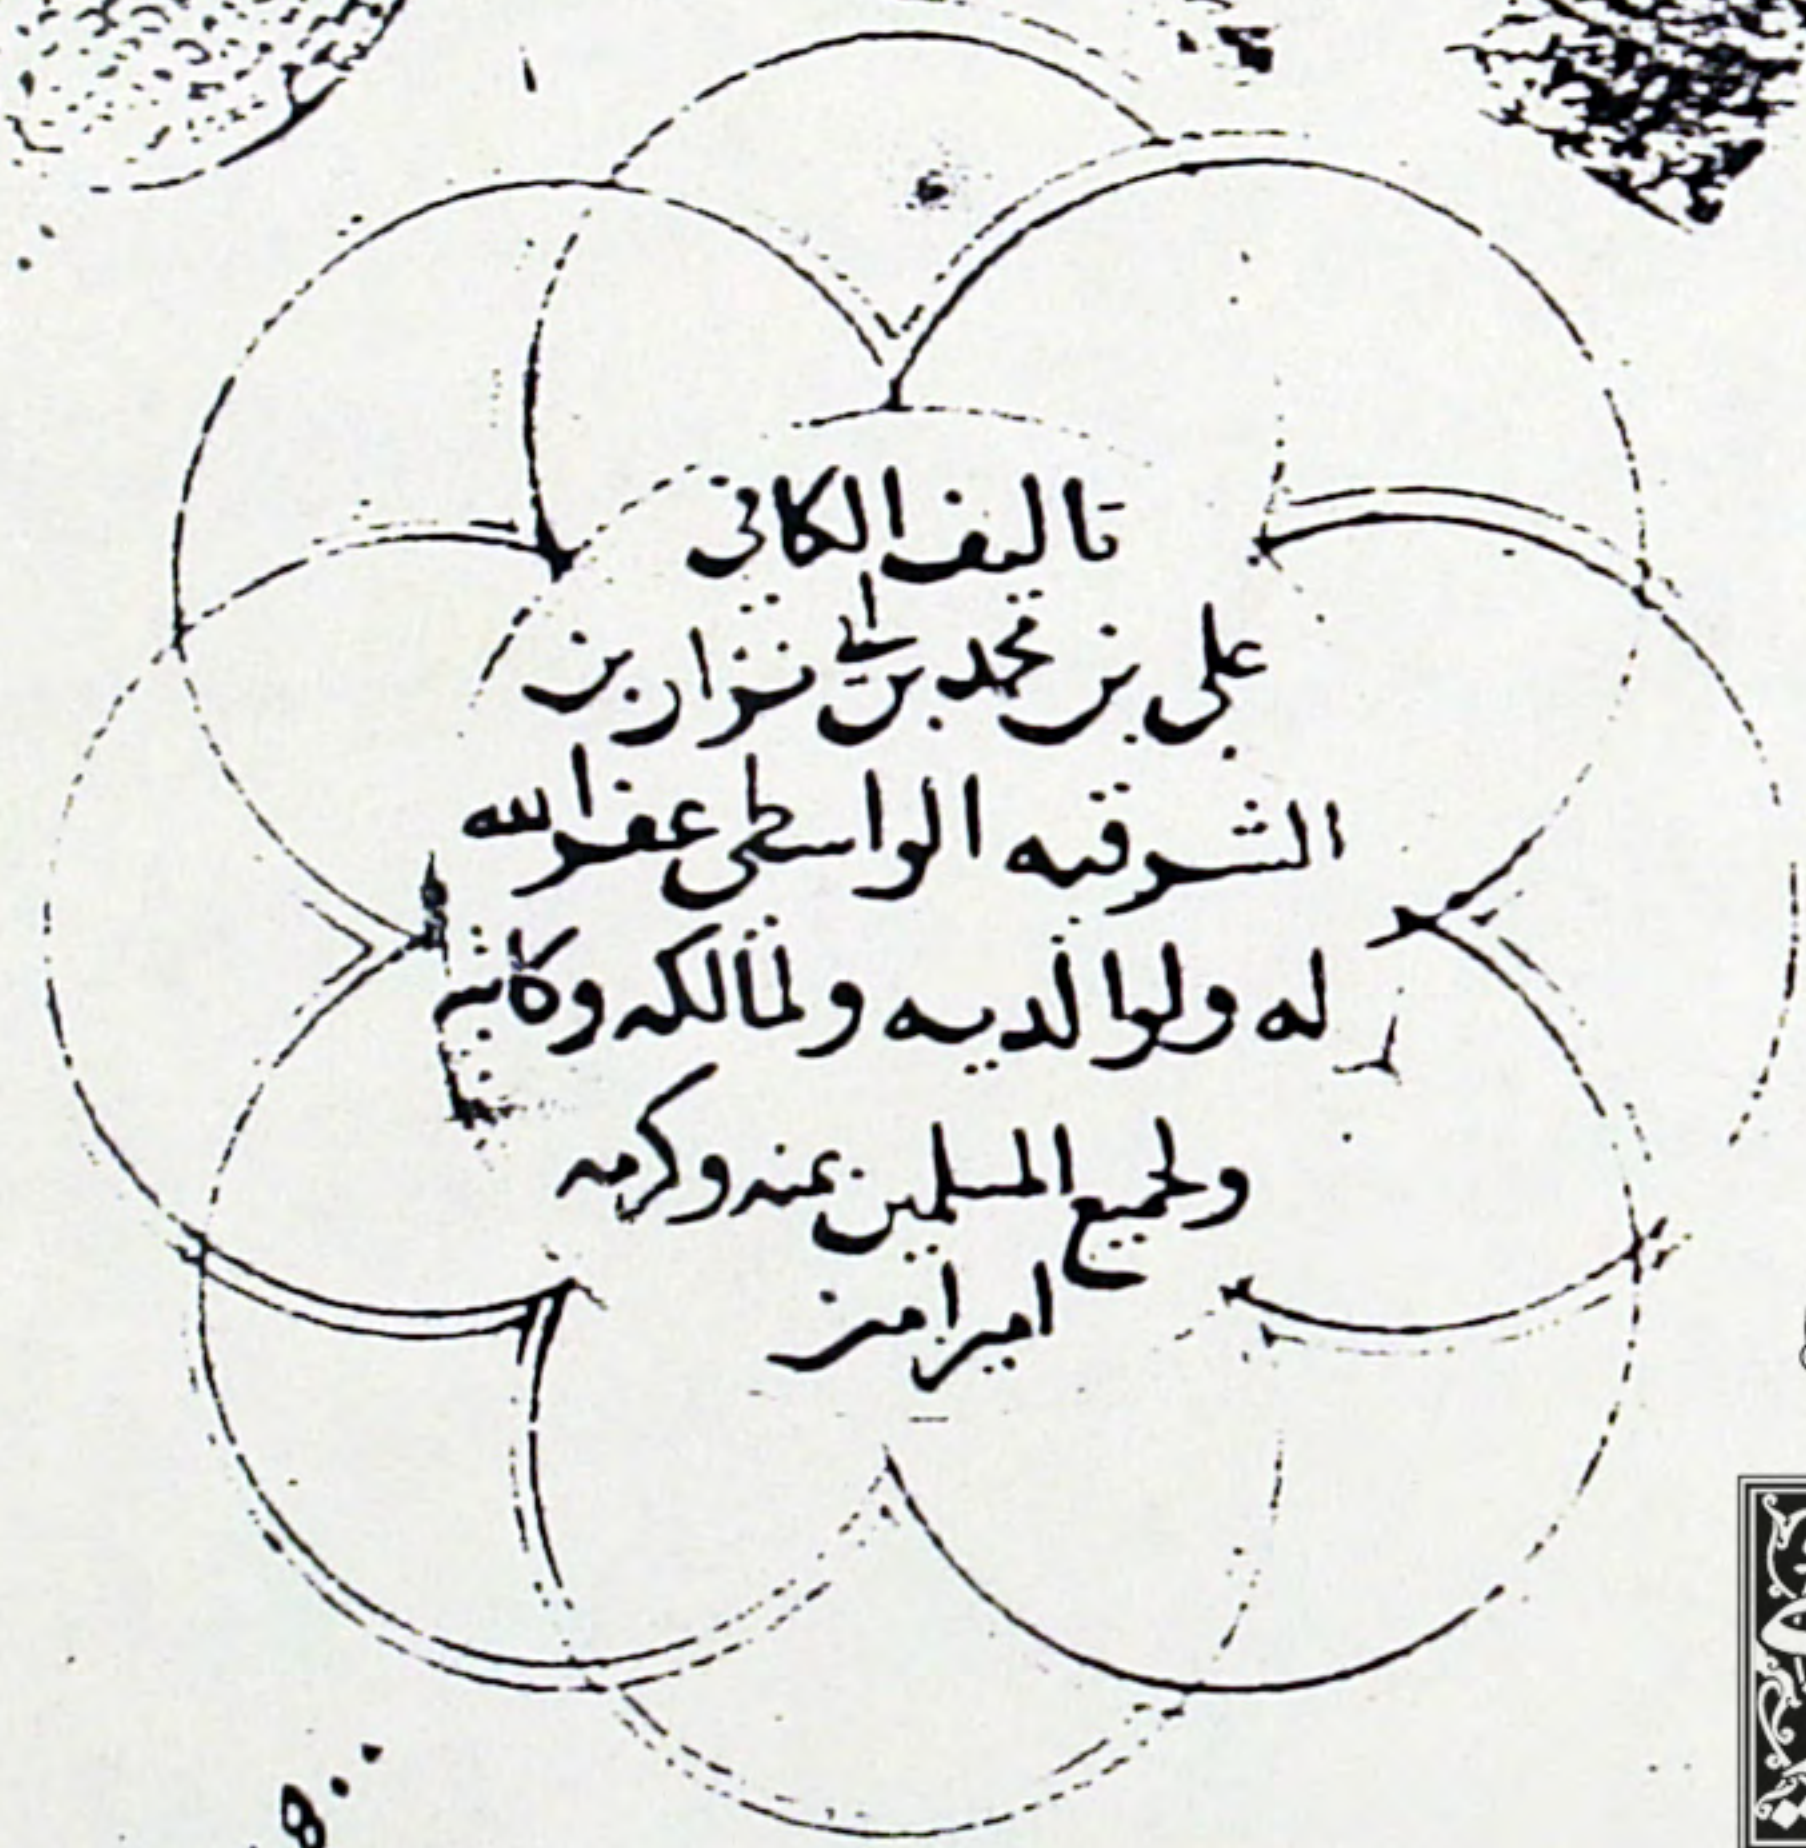 تاليف الكافي
علي بن محمد بن ابي نزار بن
الشرقيه الواسطي غفر الله
له ولوالديه ولمالكه وكاتبه
ولجميع المسلمين بمنه وكرمه
امين امين